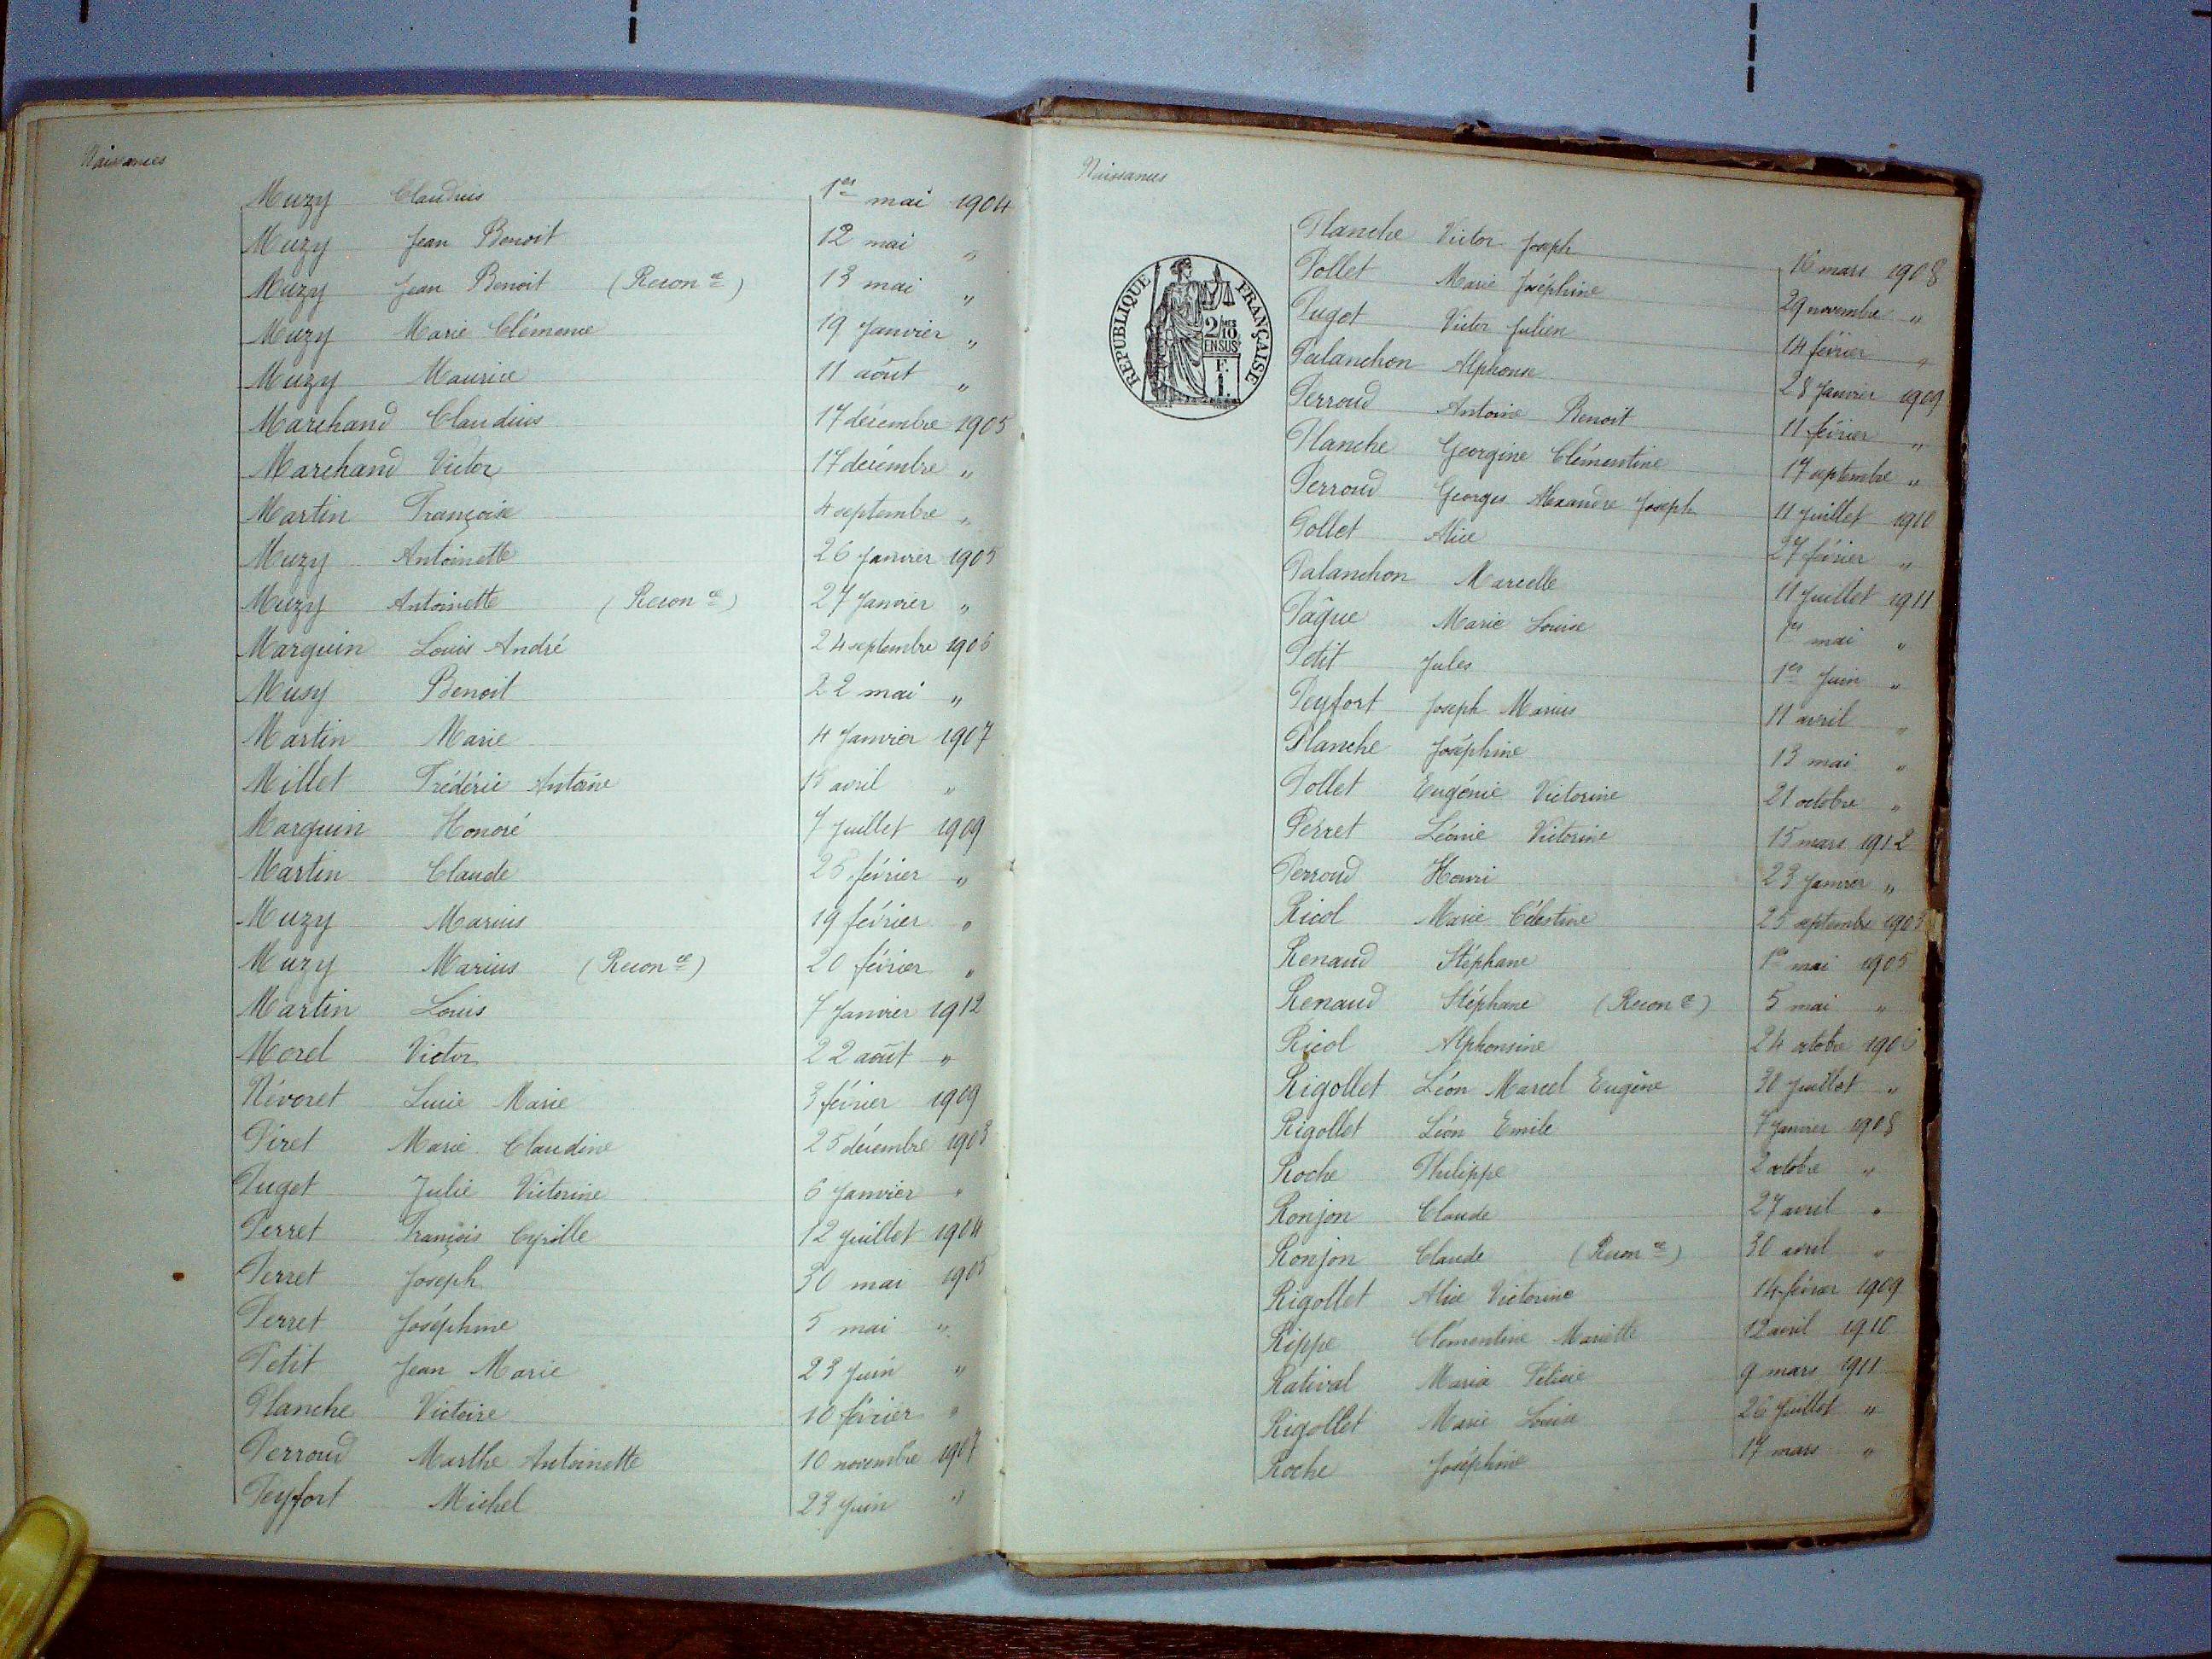 Naissances
Muzy Claudius 1er mai 1904
Muzy Jean Benoit 12 mai "
Muzy Jean Benoit (Reconce) 13 mai "
Muzy Marie Clémence 19 Janvier "
Muzy Maurice 11 août "
Marchand Claudius 17 décembre 1905
Marchand Victor 17 décembre "
Martin Françoise 4 septembre "
Muzy Antoinette 26 Janvier 1905
Muzy Antoinette (Reconce) 27 Janvier "
Marguin Louis André 24 septembre 1906
Musy Benoit 22 mai "
Martin Marie 4 Janvier 1907
Millet Frédéric Antoine 15 avril "
Marguin Honoré 7 Juillet 1909
Martin Claude 25 février "
Muzy Marius 19 février "
Muzy Marius (Reconce) 20 février "
Martin Louis 7 Janvier 1912
Morel Victor 22 août "
Névoret Lucie Marie 3 février 1909
Piret Marie Claudine 25 décembre 1903
Puget Julie Victorine 6 Janvier "
Perret François Cyrille 12 Juillet 1904
Perret Joseph 30 mai 1905
Perret Joséphine 5 mai "
Petit Jean Marie 23 Juin "
Planche Victoire 10 février "
Perroud Marthe Antoinette 10 novembre 1907
Peyfort Michel 23 Juin "
Naissances
REPUBLIQUE FRANÇAISE
2/MES
10
EN SUS
F.
1.
Planche Victor Joseph 16 mars 1908
Pollet Marie Joséphine 29 novembre "
Puget Victor Julien 14 février "
Palanchon Alphonse 28 Janvier 1909
Perroud Antoine Benoit 11 février "
Planche Georgine Clémentine 17 septembre "
Perroud Georges Alexandre Joseph 11 Juillet 1910
Pollet Alice 27 février "
Palanchon Marcelle 11 Juillet 1911
Pâque Marie Louise 1er mai "
Petit Jules 1er Juin "
Peyfort Joseph Marius 11 avril "
Planche Joséphine 13 mai "
Pollet Eugénie Victorine 21 octobre "
Perret Léonie Victorine 15 mars 1912
Perroud Henri 23 Janvier "
Ricol Marie Célestine 25 septembre 1903
Renaud Stéphane 1er mai 1905
Renaud Stéphane (Reconce) 5 mai "
Ricol Alphonsine 24 octobre 1906
Rigollet Léon Marcel Eugène 30 Juillet "
Rigollet Léon Emile 7 Janvier 1908
Roche Philippe 2 octobre "
Ronjon Claude 27 avril "
Ronjon Claude (Reconce) 30 avril "
Rigollet Alice Victorine 14 février 1909
Rippe Clémentine Mariette 12 avril 1910
Rativat Maria Félicie 9 mars 1911
Rigollet Marie Louise 26 Juillet "
Roche Joséphine 17 mars "